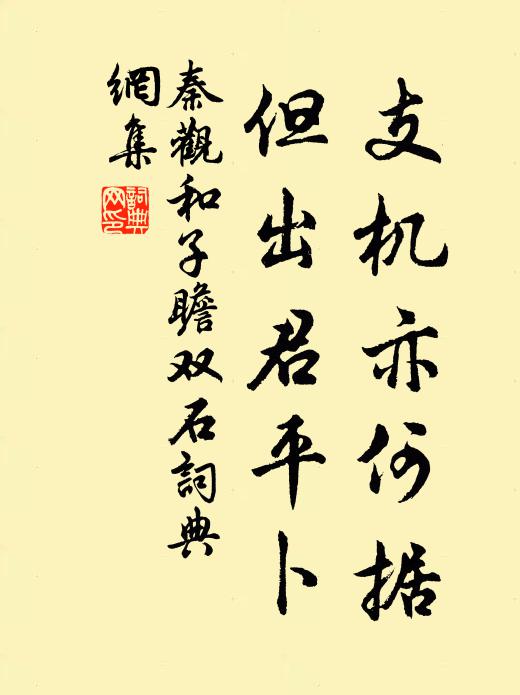 支机亦何据
但出君平卜
秦觀和子瞻双石詞典
網集
詞典
网印